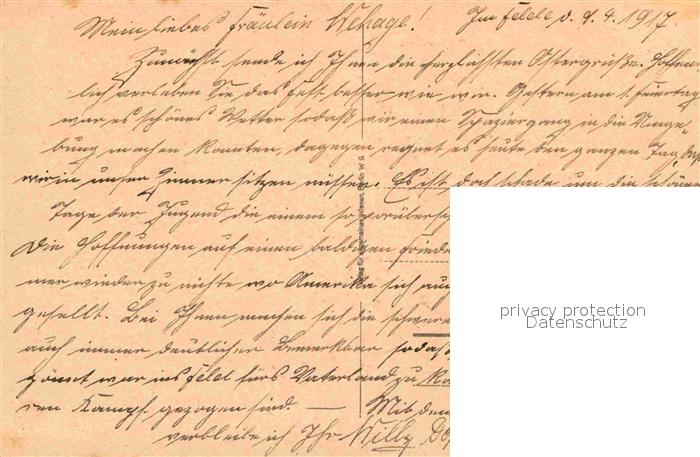 Mein liebes Fräulein Wehage! Im Felde d. 9.4.1917.
Zunächst sende ich Ihnen die herzlichsten Ostergrüße. Hoffent-
lich verleben Sie das Fest besser wie wir. Gestern am 1. Feiertag
war es schönes Wetter sodaß wir einen Spaziergang in die Umge-
bung machen konnten, dagegen regnet es heute den ganzen Tag, daß
wir in unser Zimmer sitzen müssen. Es ist doch schade um die schönen
Tage der Jugend die einem so vorüber
Die Hoffnungen auf einen baldigen Friede
mer wieder zu nichte wo Amerika sich auch
gesellt. Bei Ihnen machen sich die schwere
auch immer deutlicher bemerkbar sodaß
gönnt war ins Feld fürs Vaterland zu
ren Kampf gezogen sind. — Mit den
verbleibe ich Ihr Willy
Verlag für allgemeines Wissen, Berlin W 9.
privacy protection
Datenschutz